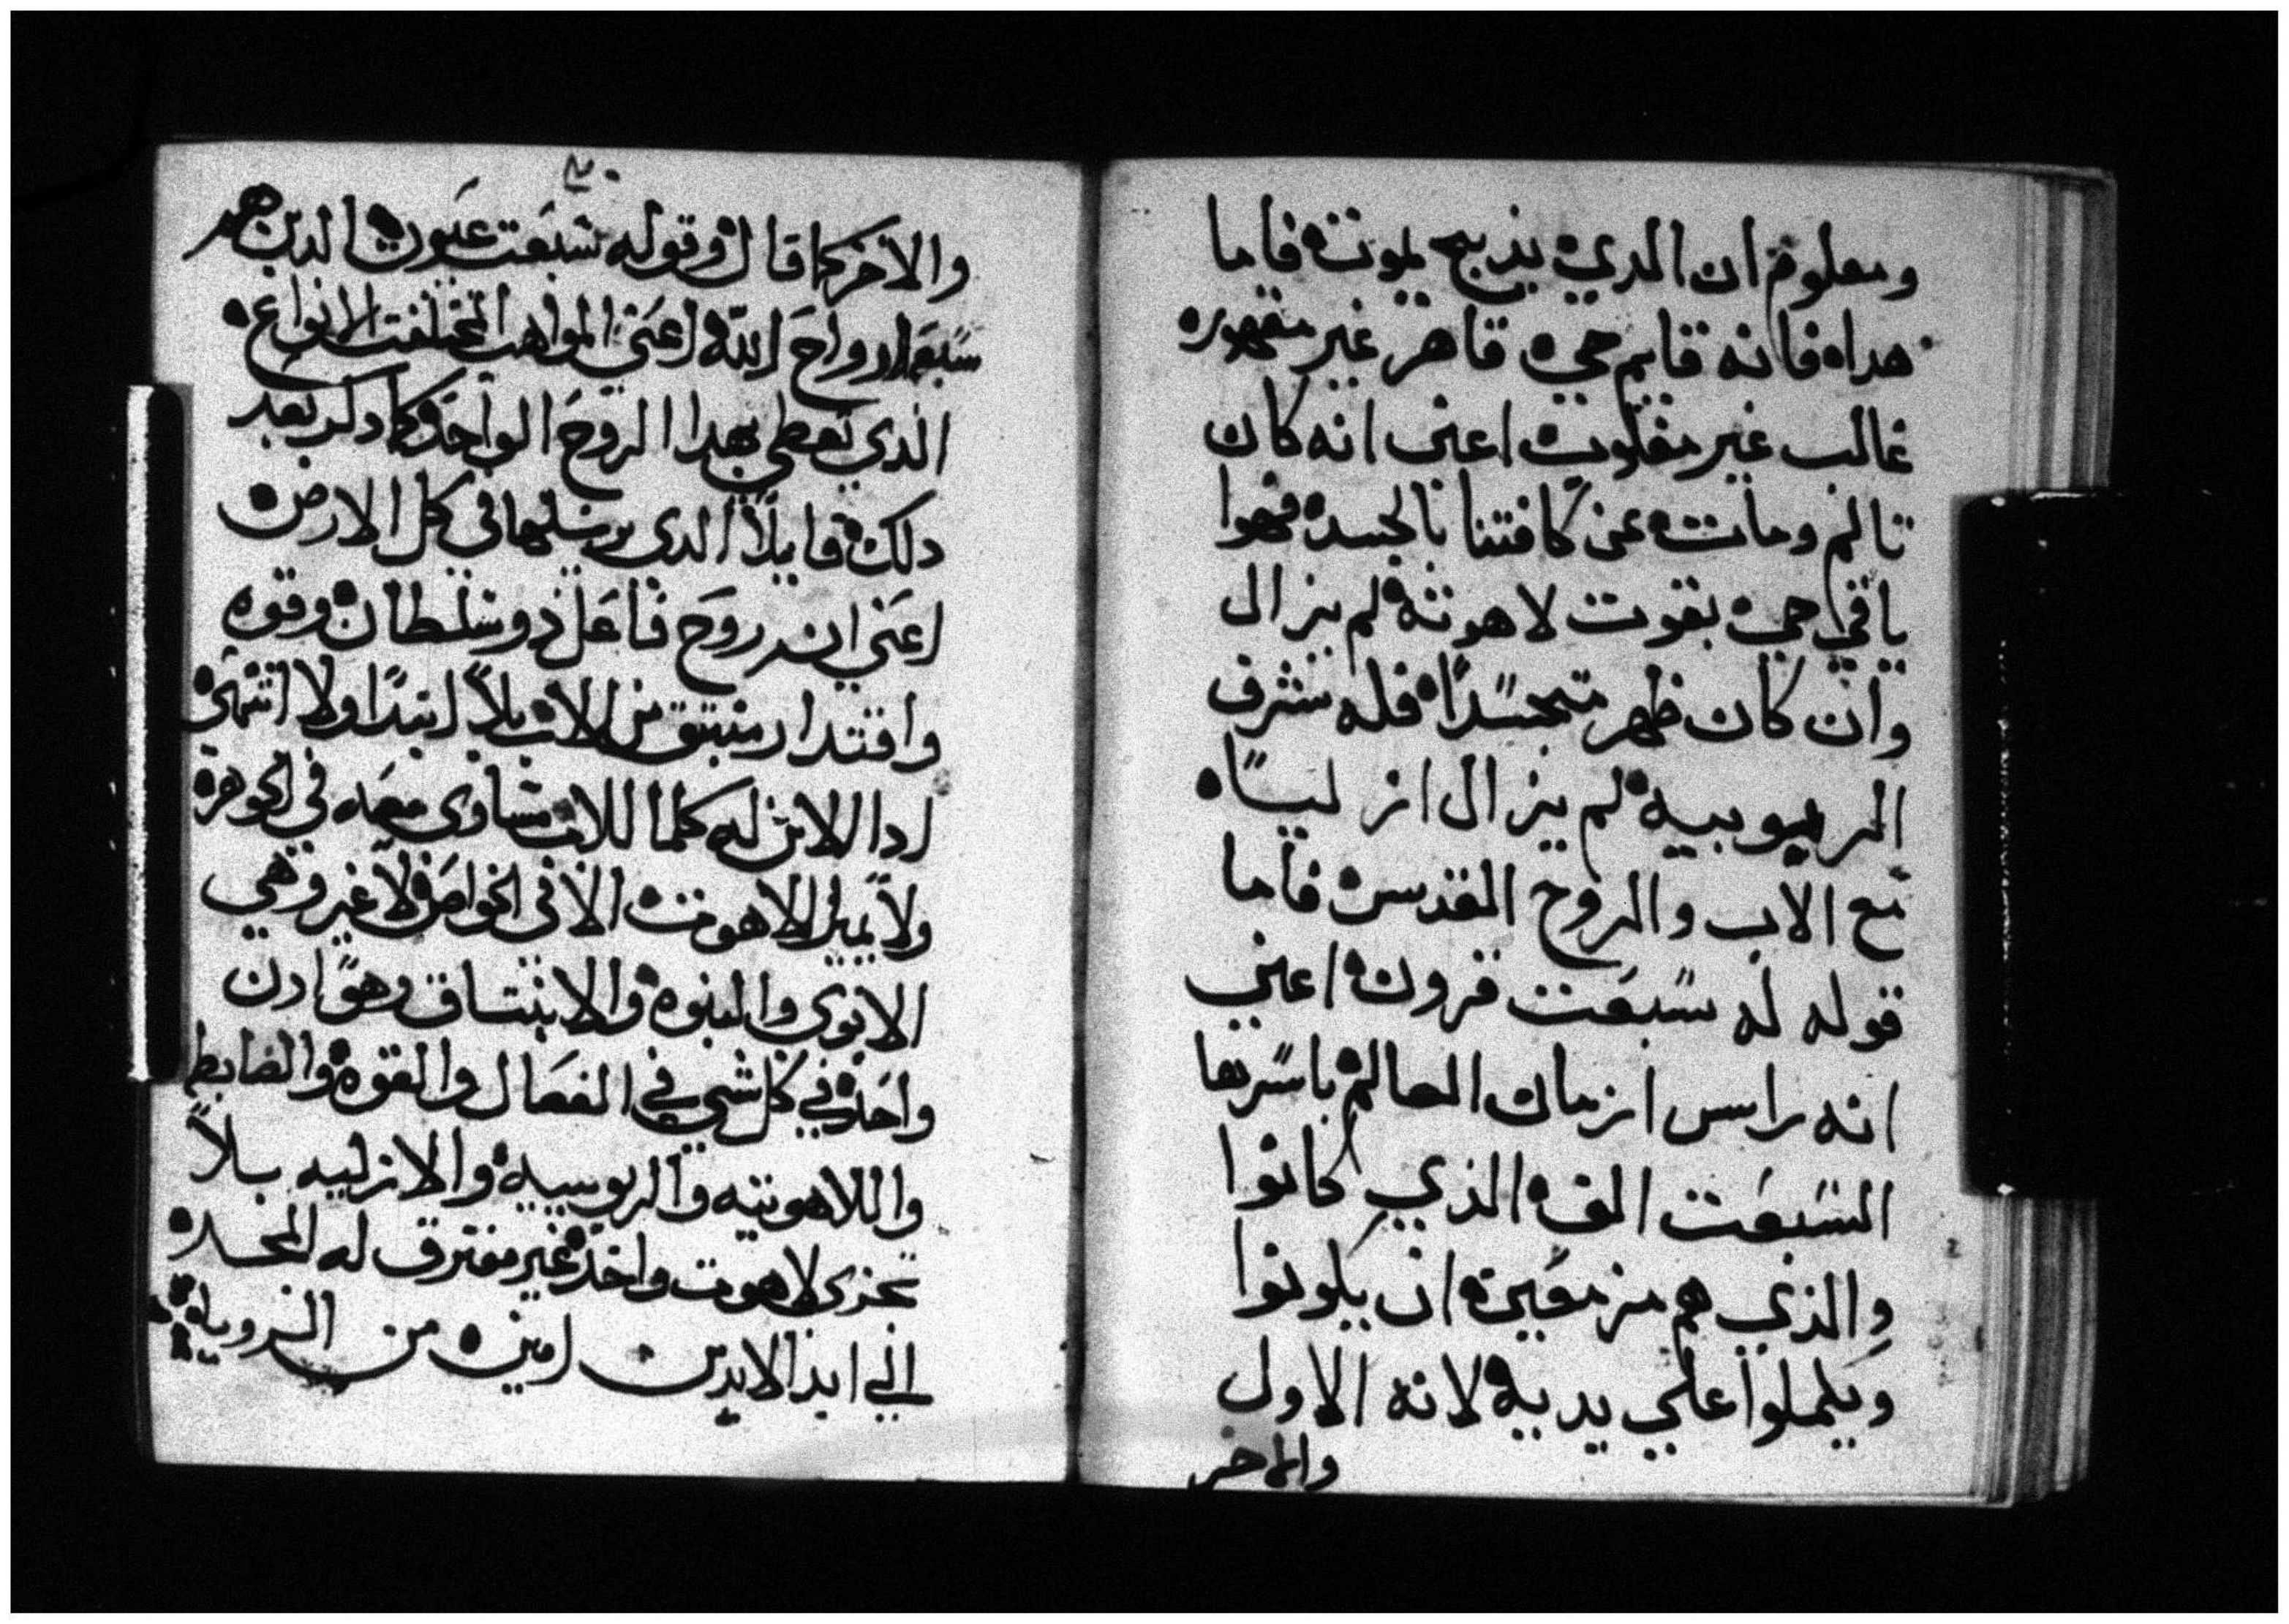 ومعلوم ان الدي يذبح يموت فاما
هدا فانه قايم حي قاهر غير مقهور
غالب غير مغلوب اعني انه كان
تالم ومات عن كافتنا بالجسد فهوا
باقي حي بقوت لاهوته لم يزال
وان كان ظهر متجسدًا فله شرف
الربوبيه لم يزال ازليًا
مع الاب والروح المقدس فاما
قوله له سبعت قرون اعني
انه راس ازمان العالم باسرها
السبعت الف الذي كانوا
والذي هم مزمعين ان يكونوا
ويكملوا علي يديه لانه الاول
والاخر
والاخر كما قال وقوله سبعت عيون الدين هم
سبعة ارواح الله اعني المواهب المختلفت الانواع
الذي تعطي بهدا الروح الواحد وكما دكر بعد
دلك قايلاً الدى يرسلها في كل الارض
اعني ان روح فاعل ذو سلطان وقوه
واقتدار منبتق من الاب بلا ابتدا ولا انتهى
ادا للابن له كلما للاب مساوى معه في الجوهر
ولا يميل اللاهوت الا في الخواص لا غير وهي
الابوى والبنوه والانبتاق وهو ادن
واحد في كل شي في الفعال والقوه والضابط
واللاهوتيه والربوبيه والازليه بلا
تجزى لاهوت واحد غير مفترق له المجد
الي ابد الابدين امين من الرويا